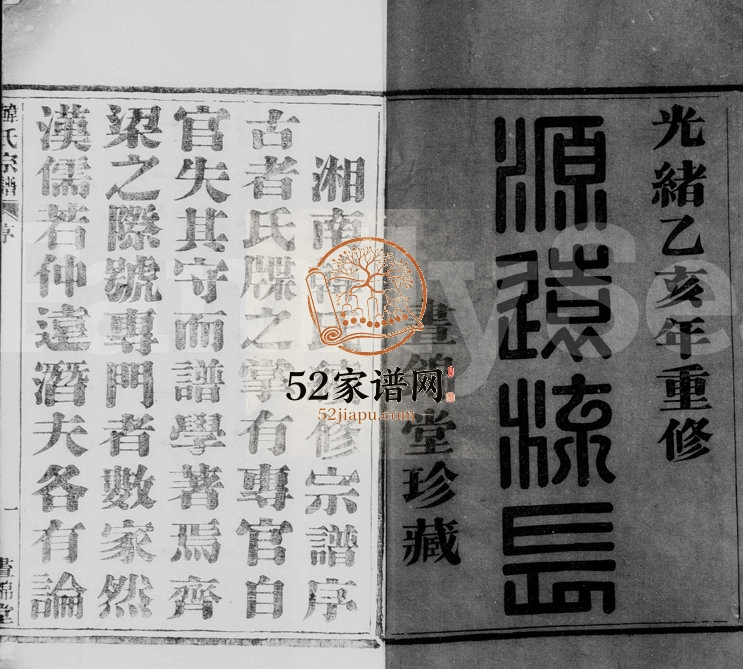 光緒乙亥年重修
源遠流長
晝錦堂珍藏
湘南韓氏 修宗譜序
古者氏牒之掌有專官自
官失其守而譜學著焉齊
梁之際號專門者數家然
漢儒若仲遠潛夫各有論
韓氏宗譜
序
一
晝錦堂
52家谱网
52jiapu.com